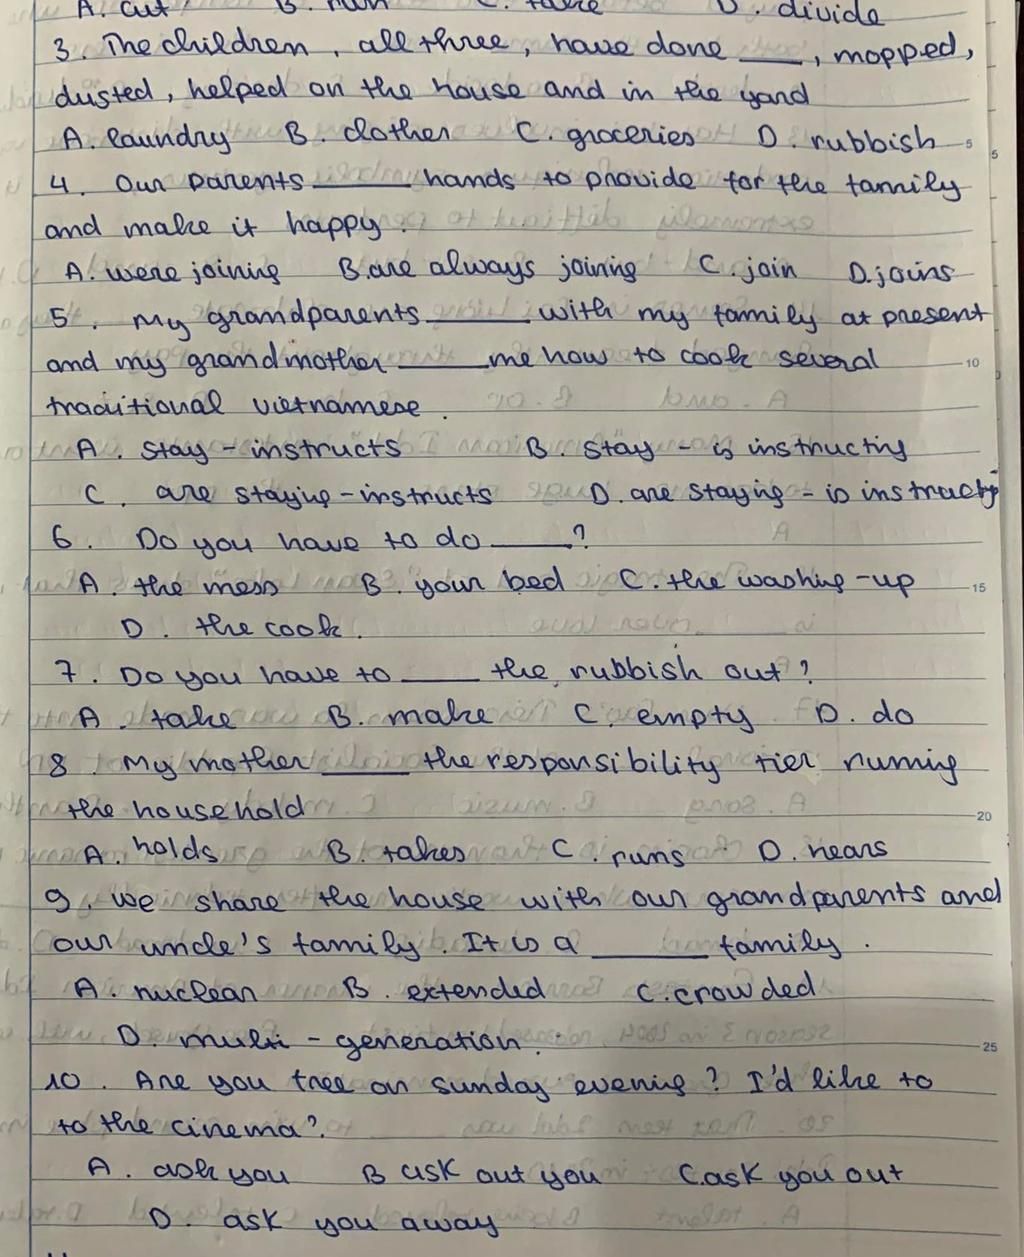 A. cut B. run C. take D. divide
3. The children, all three, have done ____, mopped,
dusted, helped on the house and in the yard
A. laundry B. clothes C. groceries D. rubbish
4. Our parents ____ hands to provide for the family
and make it happy.
A. were joining B. are always joining C. join D. joins
5. My grandparents ____ with my family at present
and my grandmother ____ me how to cook several
traditional vietnamese.
A. stay - instructs B. stay - is instructing
C. are staying - instructs D. are staying - is instructing
6. Do you have to do ____?
A. the mess B. your bed C. the washing-up
D. the cook.
7. Do you have to ____ the rubbish out?
A. take B. make C. empty D. do
8. My mother ____ the responsibility runing
the household
A. holds B. takes C. runs D. nears
9. We share the house with our grandparents and
our uncle's family. It is a ____ family.
A. nuclear B. extended C. crowded
D. multi-generation.
10. Are you free on sunday evening? I'd like to
to the cinema?
A. ask you B ask out you C. ask you out
D. ask you away